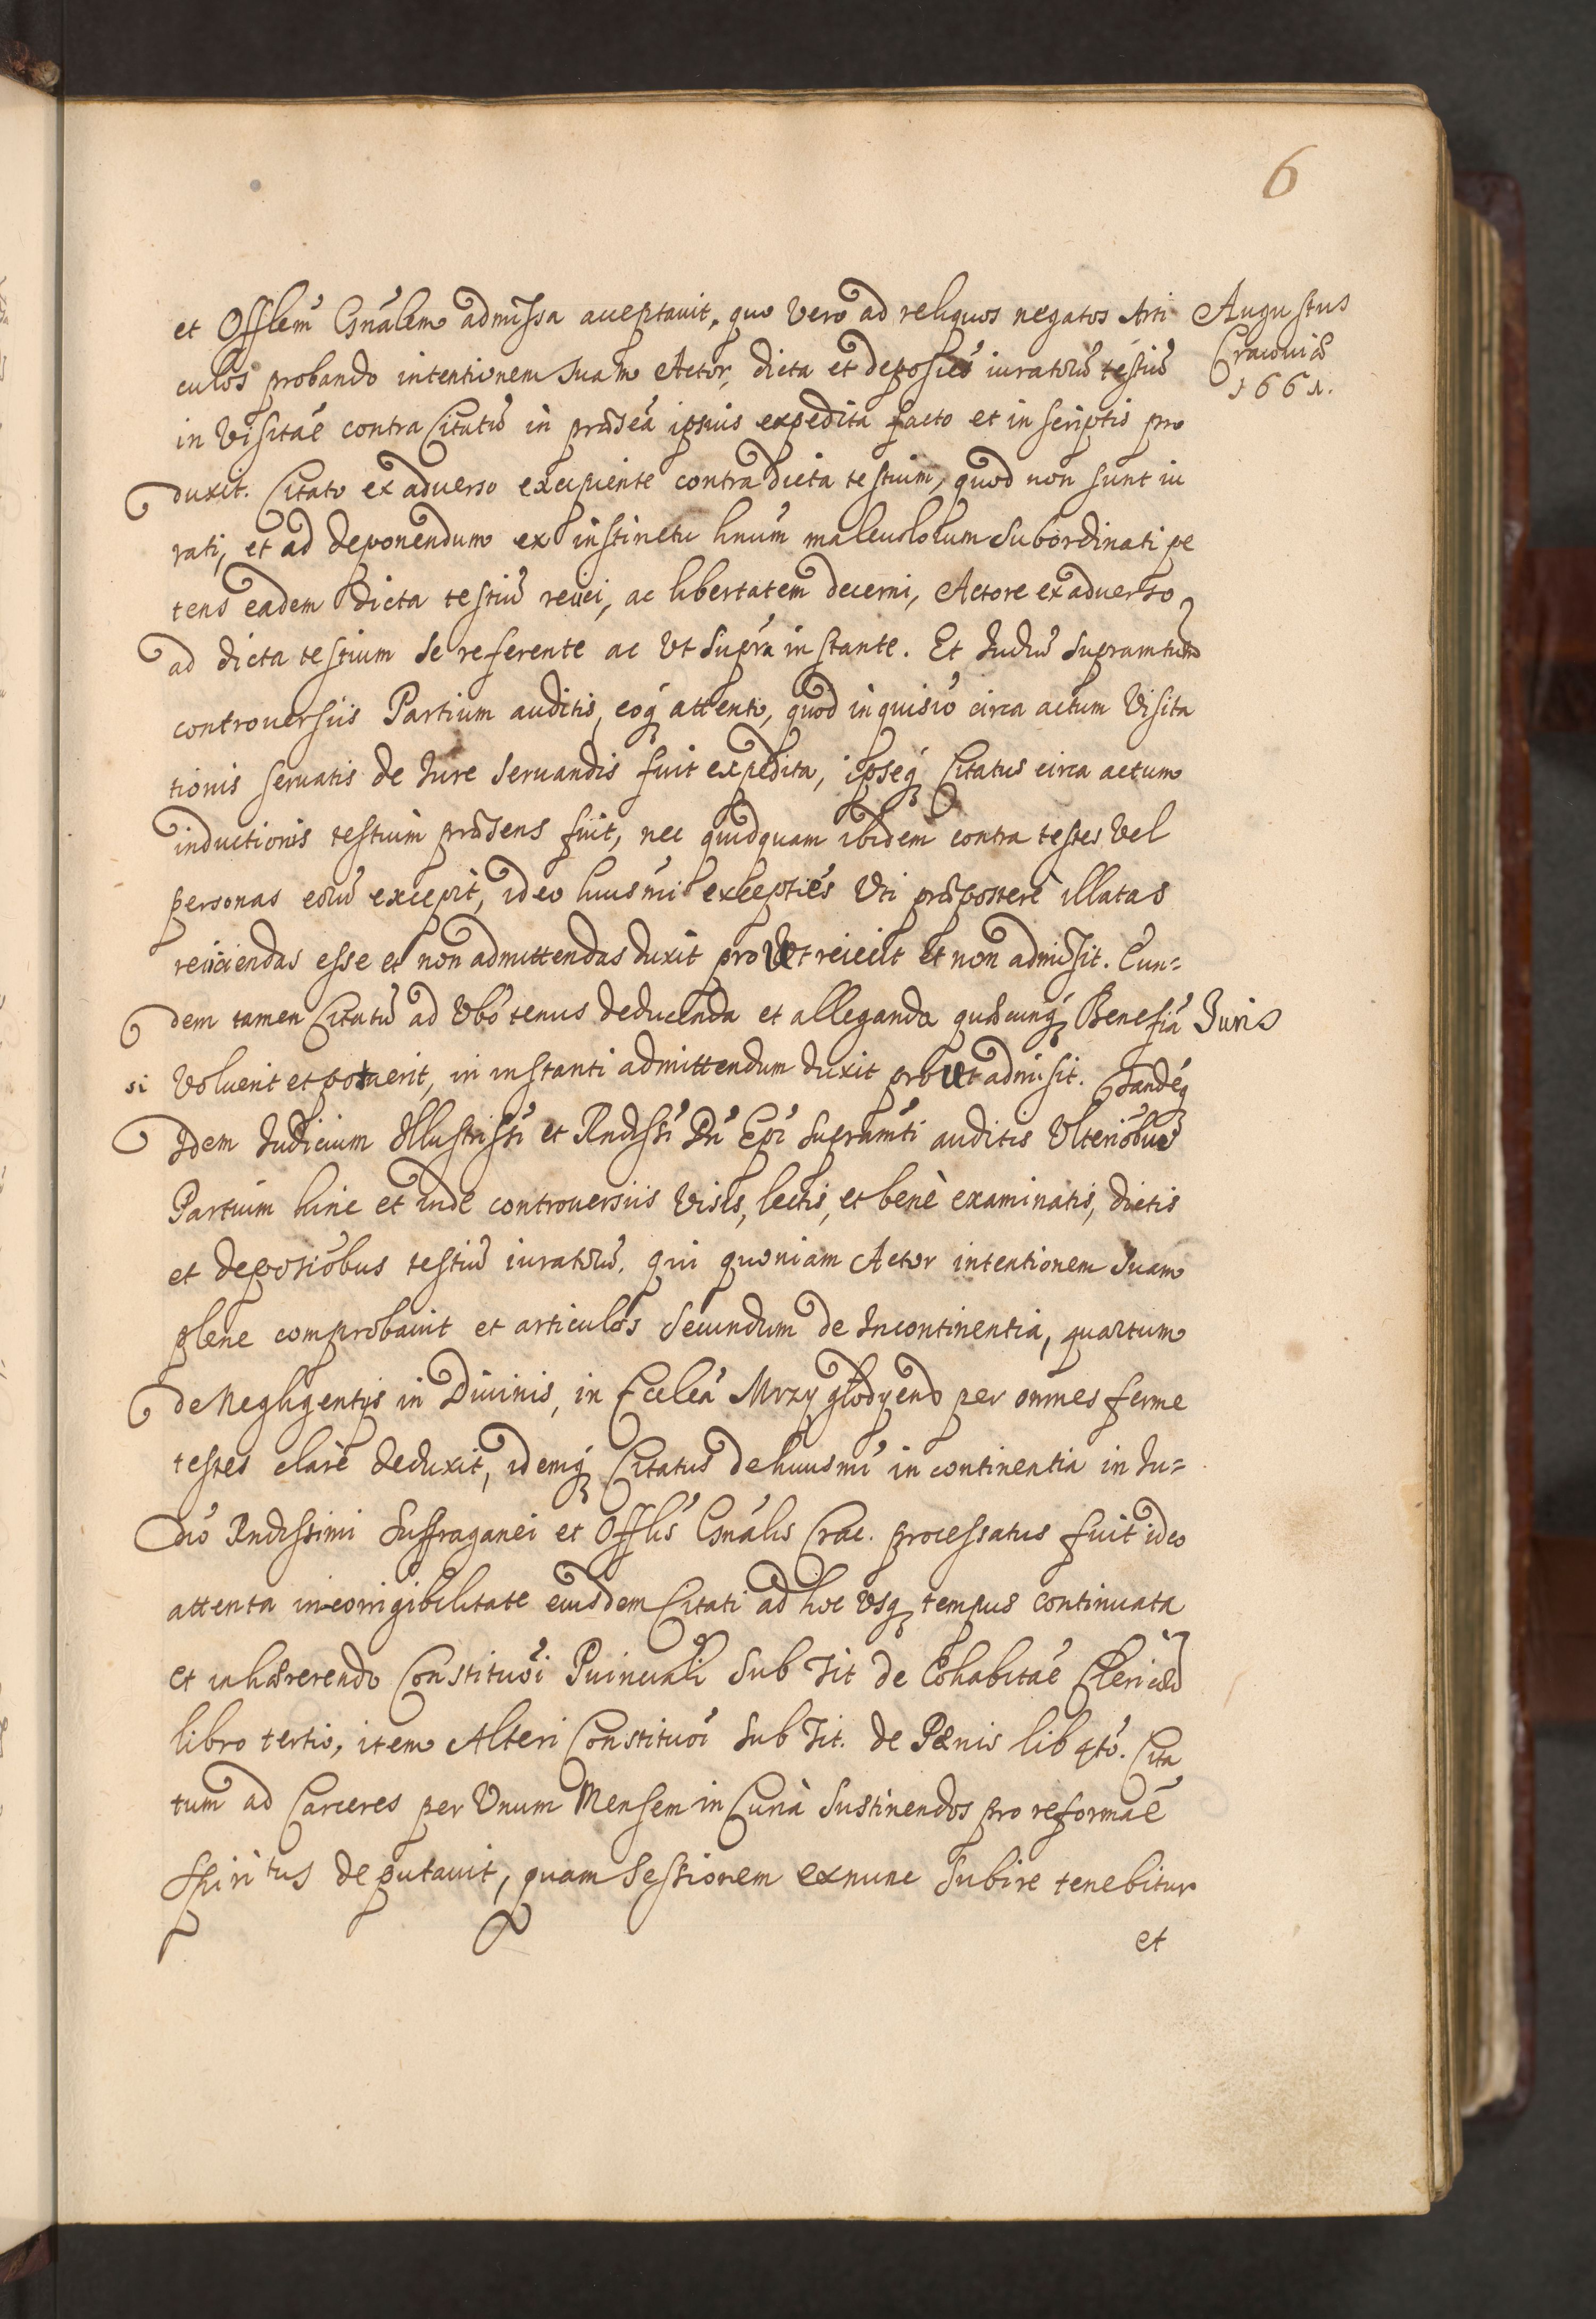 6
Augustus
Cracouiæ
1661.
et Offlem̃ Gñalem admissa acceptauit, quo vero ad reliquos negatos Arti
culos probando intentionem suam Actor, dicta et deposiẽs iuratorũ testiũ
in Visitaẽ contra Citatũ in præseã ipsius expedita facto et in scriptis pro
duxit. Citato ex aduerso excipiente contra dicta testium, quod non sunt iu
rati, et ad deponendum ex instinctu hnũm maleuolorum subordinati pe
tens eadem dicta testiũ reiici, ac libertatem decerni, Actore ex aduerso
ad dicta testium se referente ac vt supra instante. Et Iudiũ supramtum
controuersiis Partium auditis, eoq́ attento, quod inquisió circa actum Visita
tionis seruatis de Iure seruandis fuit expedita, ipseq́ Citatus circa actum
inductionis testium præsens fuit, nec quidquam ibidem contra testes vel
personas eorũ excepit, ideo huiusmi exceptiẽs vti præpostere illatas
reiiciendas esse et non admittendas duxit prout reiecit et non admisit. Eun=
dem tamen Citatũ ad vbo tenus deducenda et alleganda quæcunq́ Benefia Juris
si voluerit et potuerit, in instanti admittendum duxit prout admisit. Tandeq́
Idem Iudicium Illustrissi et Rndissi Dñi Epi supramti auditis vlterióbus
Partium hinc et inde controuersiis visis, lectis, et benè examinatis, dictis
et deposiõbus testiũ iuratorũ. qui quoniam Actor intentionem suam
plene comprobauit et articulos secundum de Incontinentia, quartum
de Negligentijs in Diuinis, in Eccleã Mrzygłodyens per omnes ferme
testes clarè deduxit, idemq́ Citatus de huiusmi incontinentia in Iu=
dió Rndissimi Suffraganei et Offlis Gñalis Crac. processatus fuit ideo
attenta incorrigibilitate eiusdem Citati ad hoc vsq tempus continuata
et inhærerendo Constituõi Puinciali sub Tit de Cohabitaẽ Clericorũ
libro tertio, item Alteri Constituõi sub Tit. de Pænis lib qto. Cita
tum ad Carceres per Vnum Mensem in Curia sustinendos pro reformaẽ
Spiritus deputauit, quam sessionem exnunc subire tenebitur
et